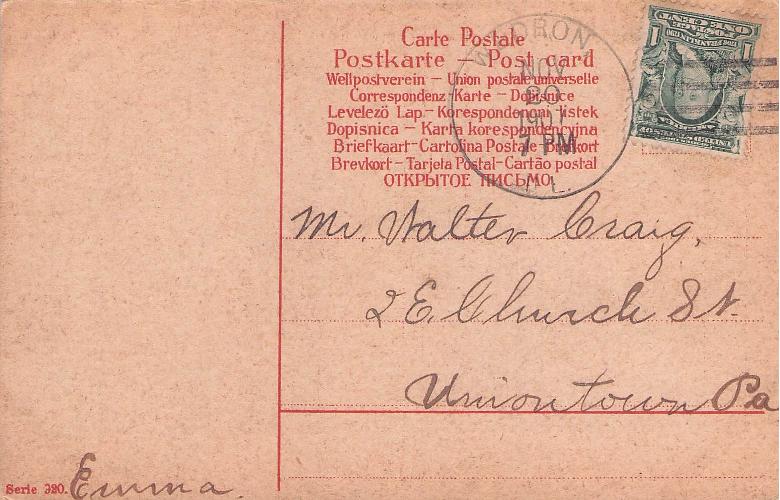 Carte Postale
Postkarte – Post card
Weltpostverein – Union postale universelle
Correspondenz-Karte – Dopisnice
Levelező Lap – Korespondencni listek
Dopisnica – Karta korespondencyjna
Briefkaart – Cartolina Postale – Brefkort
Brevkort – Tarjeta Postal – Cartão postal
ОТКРЫТОЕ ПИСЬМО.
NOV
20
1907
7 PM
1 1
Mr. Walter Craig,
2 E. Church St.
Uniontown Pa
Serie 320.
Emma.